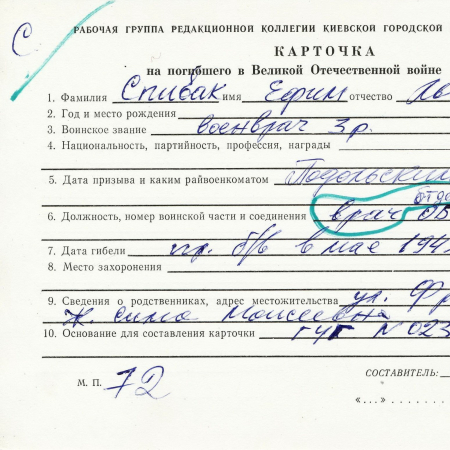 С
РАБОЧАЯ ГРУППА РЕДАКЦИОННОЙ КОЛЛЕГИИ КИЕВСКОЙ ГОРОДСКОЙ
КАРТОЧКА
на погибшего в Великой Отечественной войне
1. Фамилия Спивак имя Ефим отчество
2. Год и место рождения
3. Воинское звание военврач 3 р.
4. Национальность, партийность, профессия, награды
5. Дата призыва и каким райвоенкоматом Подольским
6. Должность, номер воинской части и соединения врач
7. Дата гибели пр. б/в в мае 194
8. Место захоронения
9. Сведения о родственниках, адрес местожительства ул. Фр
ж. Сима Моисеевна
10. Основание для составления карточки ГУГ N 023
М. П. 72
СОСТАВИТЕЛЬ:
«...»